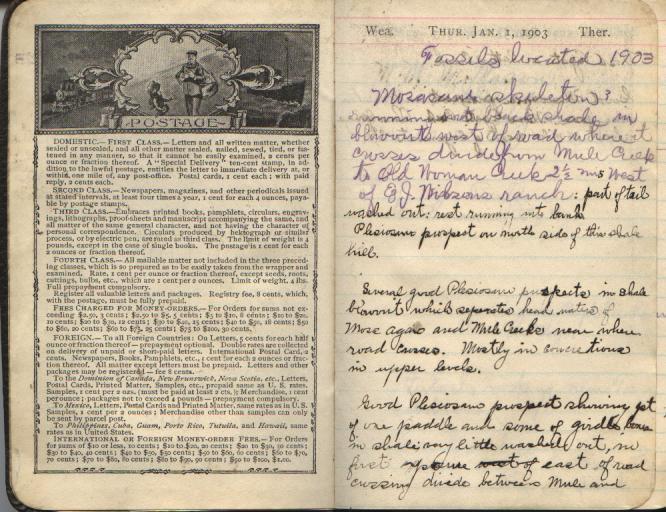 POSTAGE
DOMESTIC.— FIRST CLASS.— Letters and all written matter, whether
sealed or unsealed, and all other matter sealed, nailed, sewed, tied, or fas-
tened in any manner, so that it cannot be easily examined, 2 cents per
ounce or fraction thereof. A "Special Delivery" ten-cent stamp, in ad-
dition to the lawful postage, entitles the letter to immediate delivery at, or
within one mile of, any post-office. Postal cards, 1 cent each; with paid
reply, 2 cents each.
SECOND CLASS.— Newspapers, magazines, and other periodicals issued
at stated intervals, at least four times a year, 1 cent for each 4 ounces, paya-
ble by postage stamps.
THIRD CLASS.— Embraces printed books, pamphlets, circulars, engrav-
ings, lithographs, proof-sheets and manuscript accompanying the same, and
all matter of the same general character, and not having the character of
personal correspondence. Circulars produced by hektograph or similar
process, or by electric pen, are rated as third class. The limit of weight is 4
pounds, except in the case of single books. The postage is 1 cent for each
2 ounces or fraction thereof.
FOURTH CLASS.— All mailable matter not included in the three preced-
ing classes, which is so prepared as to be easily taken from the wrapper and
examined. Rate, 1 cent per ounce or fraction thereof, except seeds, roots,
cuttings, bulbs, etc., which are 1 cent per 2 ounces. Limit of weight, 4 lbs.
Full prepayment compulsory.
Register all valuable letters and packages. Registry fee, 8 cents, which,
with the postage, must be fully prepaid.
FEES CHARGED FOR MONEY-ORDERS.— For Orders for sums not ex-
ceeding $2.50, 3 cents; $2.50 to $5, 5 cents; $5 to $10, 8 cents; $10 to $20,
10 cents; $20 to $30, 12 cents; $30 to $40, 15 cents; $40 to $50, 18 cents; $50
to $60, 20 cents; $60 to $75, 25 cents; $75 to $100, 30 cents.
FOREIGN.— To all Foreign Countries: On Letters, 5 cents for each half
ounce or fraction thereof — prepayment optional. Double rates are collected
on delivery of unpaid or short-paid letters. International Postal Card, 2
cents. Newspapers, Books, Pamphlets, etc., 1 cent for each 2 ounces or frac-
tion thereof. All matter except letters must be prepaid. Letters and other
packages may be registered — fee 8 cents.
To the Dominion of Canada, New Brunswick, Nova Scotia, etc., Letters,
Postal Cards, Printed Matter, Samples, etc., prepaid same as U. S. rates.
Samples, 1 cent per 2 ozs. (must be paid at least 2 cts.); Merchandise, 1 cent
per ounce; packages not to exceed 4 pounds — prepayment compulsory.
To Mexico, Letters, Postal Cards and Printed Matter, same rates as in U. S.
Samples, 1 cent per 2 ounces; Merchandise other than samples can only
be sent by parcel post.
To Philippines, Cuba, Guam, Porto Rico, Tutuila, and Hawaii, same
rates as in United States.
INTERNATIONAL OR FOREIGN MONEY-ORDER FEES.— For Orders
for sums of $10 or less, 10 cents; $10 to $20, 20 cents; $20 to $30, 30 cents;
$30 to $40, 40 cents; $40 to $50, 50 cents; $50 to $60, 60 cents; $60 to $70,
70 cents; $70 to $80, 80 cents; $80 to $90, 90 cents; $90 to $100, $1.00.
Wea. THUR. JAN. 1, 1903 Ther.
Fossils located 1903
Mosasaur skeleton?
running into bank shale in
blowout west of road where it
crosses divide from Mule Creek
to Old Woman Creek 2½ ms West
of E.J. Wilsons ranch: part of tail
washed out: rest running into bank
Plesiosaur prospect on north side of this shale
hill.
Several good Plesiosaur prospects in shale
blowout which separates head waters of
Mose agos and Mule Creeks near where
road crosses. Mostly in concretions
in upper levels.
Good Plesiosaur prospect showing pt
of one paddle and some of girdle bones
in shale very little washed out, in
first of east of road
crossing divide between Mule and